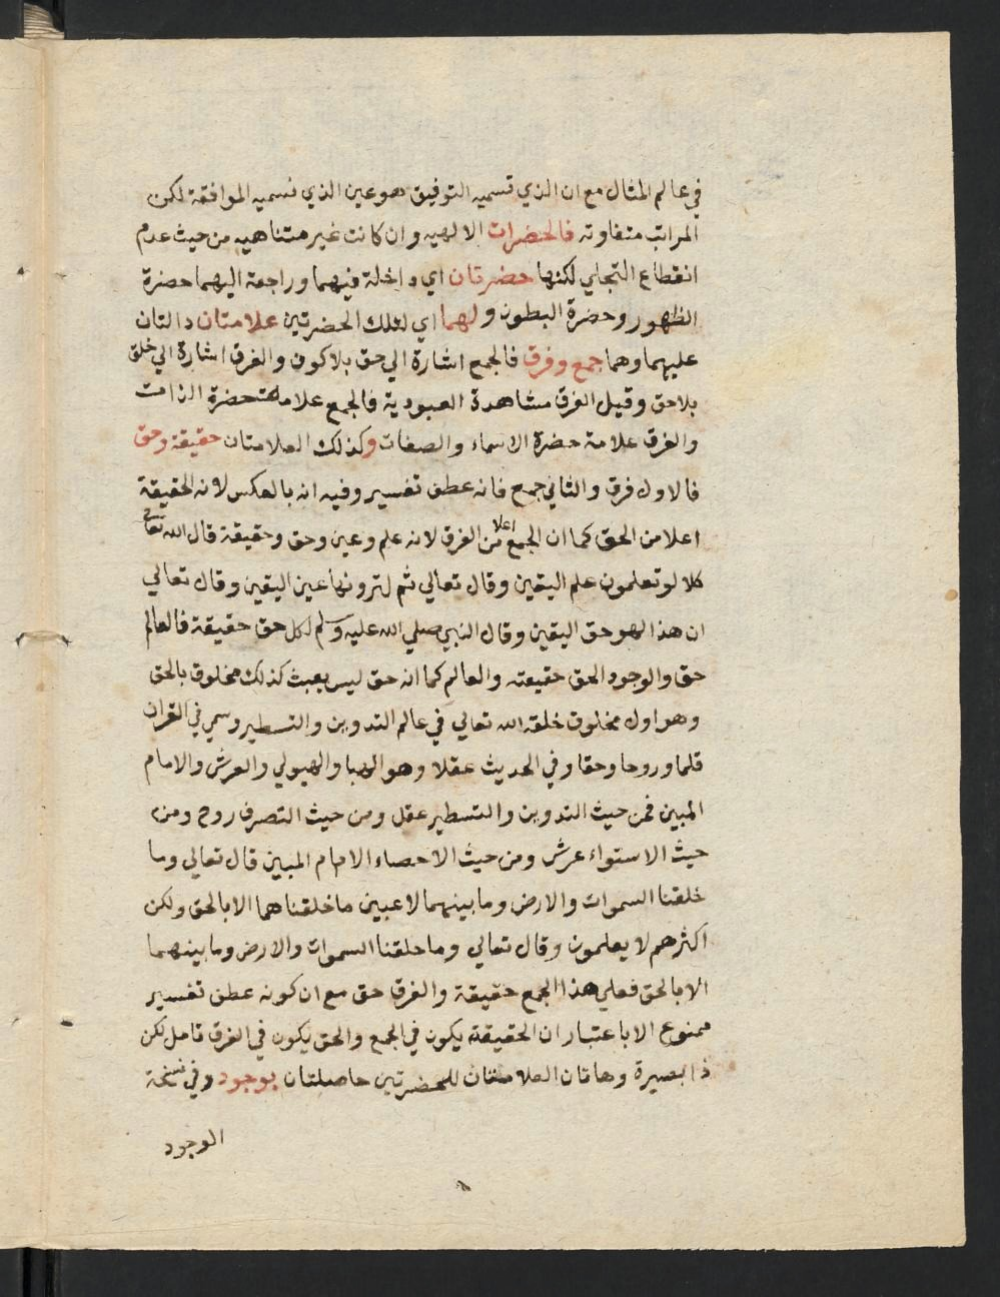 في عالم المثال مع ان الذي تسميه التوفيق هو عين الذي نسميه الموافقة لكن
المراتب متفاوته فالحضرات الالهيه وان كانت غير متناهيه من حيث عدم
انقطاع التجلي لكنها حضرتان اي داخلة فيهما وراجعة اليهما حضرة
الظهور وحضرة البطون ولهما اي لتلك الحضرتين علامتان دالتان
عليهما وهما جمع وفرق فالجمع اشارة الي حق بلا كون والفرق اشارة الي خلق
بلا حق وقيل الفرق مشاهدة العبودية فالجمع علامة حضرة الذات
والفرق علامة حضرة الاسماء والصفات وكذلك العلامتان حقيقة وحق
فالاول فرق والثاني جمع فانه عطف تفسير وفيه انه بالعكس لانه الحقيقة
اعلا من الحق كما ان الجمع اعلا من الفرق لانه علم وعين وحق وحقيقة قال الله تعالي
كلا لو تعلمون علم اليقين وقال تعالي ثم لترونها عين اليقين وقال تعالي
ان هذا لهو حق اليقين وقال النبي صلي الله عليه وسلم لكل حق حقيقة فالعالم
حق والوجود الحق حقيقته والعالم كما انه حق ليس بعبث كذلك مخلوق بالحق
وهو اول مخلوق خلقه الله تعالي في عالم التدوين والتسطير وسمي في القران
قلما وروحا وحقا وفي الحديث عقلا وهو الهبا والهيولي والعرش والامام
المبين فمن حيث التدوين والتسطير عقل ومن حيث التصرف روح ومن
حيث الاستواء عرش ومن حيث الاحصاء الامام المبين قال تعالي وما
خلقنا السموات والارض وما بينهما لاعبين ما خلقناهما الا بالحق ولكن
اكثرهم لا يعلمون وقال تعالي وما خلقنا السموات والارض وما بينهما
الا بالحق فعلي هذا الجمع حقيقة والفرق حق مع ان كونه عطف تفسير
ممنوع الا باعتبار ان الحقيقة يكون في الجمع والحق يكون في الفرق تامل لكن
ذا بصيرة وهاتان العلامتان للحضرتين حاصلتان بوجود وفي نسخة
الوجود